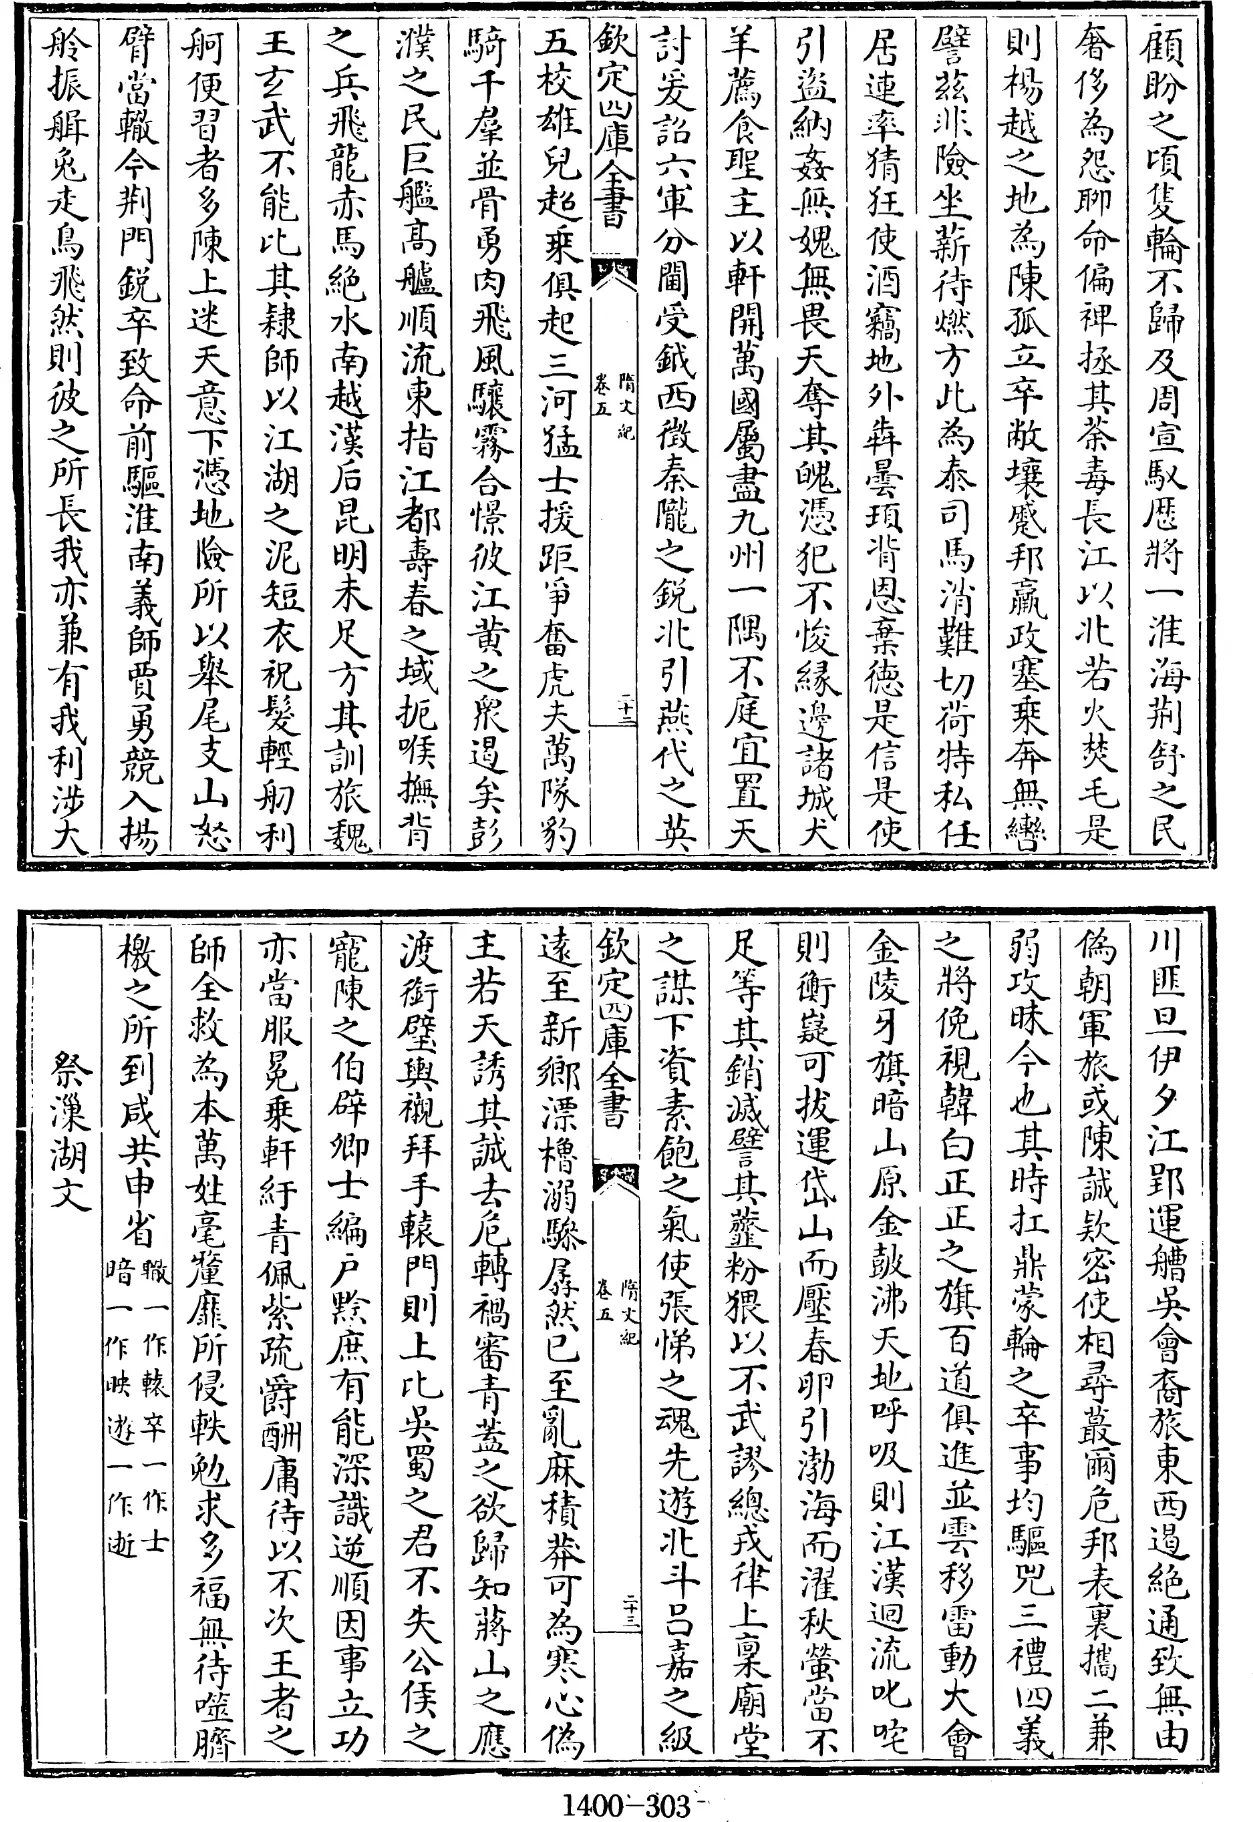 顧盼之頃隻輪不歸及周宣馭厯將一淮海荆舒之民
奢侈為怨聊命偏裨拯其荼毒長江以北若火焚毛是
則楊越之地為陳孤立卒敝壤蹙邦羸政塞乗奔無轡
譬兹非險坐薪待燃方此為泰司馬消難切荷特私任
居連率猜狂使酒竊地外犇曇頊背恩棄德是信是使
引盗納姦無媿無畏天奪其魄憑犯不悛緣邊諸城犬
羊薦食聖主以軒開萬國屬盡九州一隅不庭宜置天
討爰詔六軍分閫受鉞西徴秦隴之鋭北引燕代之英
欽定四庫全書
隋文紀
卷五
二十二
五校雄兒超乗俱起三河猛士援距爭奮虎夫萬隊豹
騎千羣並骨勇肉飛風驤霧合憬彼江黄之衆遏矣彭
濮之民巨艦髙艫順流東指江都壽春之域扼喉撫背
之兵飛龍赤馬絶水南越漢后昆明未足方其訓旅魏
王玄武不能比其隸師以江湖之泥短衣祝髮輕舠利
舸便習者多陳上迷天意下憑地險所以舉尾支山怒
臂當轍今荆門鋭卒致命前驅淮南義師賈勇競入揚
舲振艀兔走鳥飛然則彼之所長我亦兼有我利涉大
川匪旦伊夕江郢運艚吳會裔旅東西遏絶通致無由
偽朝軍旅或陳誠欵密使相尋蕞爾危邦表裏攜二兼
弱攻昧今也其時扛鼎蒙輪之卒事均驅兕三禮四義
之將俛視韓白正正之旗百道俱進並雲移雷動大會
金陵牙旗暗山原金鼓沸天地呼吸則江漢迴流叱咤
則衡嶷可拔運岱山而壓春卵引渤海而濯秋螢當不
足等其銷滅譬其虀粉猥以不武謬總戎律上稟廟堂
之謀下資素飽之氣使張悌之魂先遊北斗吕嘉之級
欽定四庫全書
隋文紀
卷五
二十三
逺至新鄉漂櫓溺驂孱然已至亂麻積莽可為寒心偽
主若天誘其誠去危轉禍審青蓋之欲歸知蔣山之應
渡銜璧輿櫬拜手轅門則上比吳蜀之君不失公侯之
寵陳之伯辟卿士編户黔庶有能深識逆順因事立功
亦當服冕乗軒紆青佩紫疏爵酬庸待以不次王者之
師全救為本萬姓毫釐靡所侵軼勉求多福無待噬臍
檄之所到咸共申省
轍一作轅卒一作士
暗一作映遊一作逝
祭漅湖文
1400-303